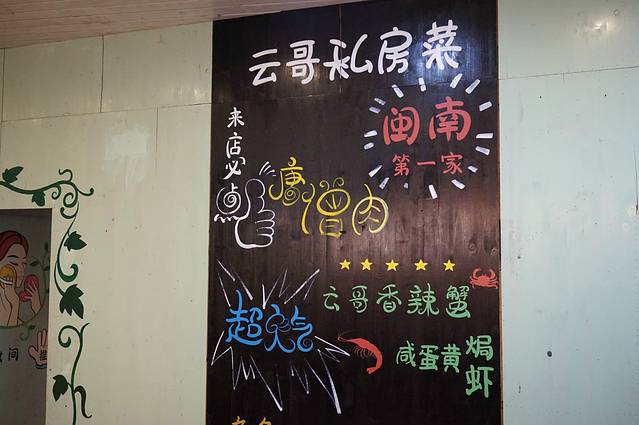 云哥私房菜
闽南
第一家
来店必点
唐僧肉
云哥香辣蟹
超人气
咸蛋黄焗虾